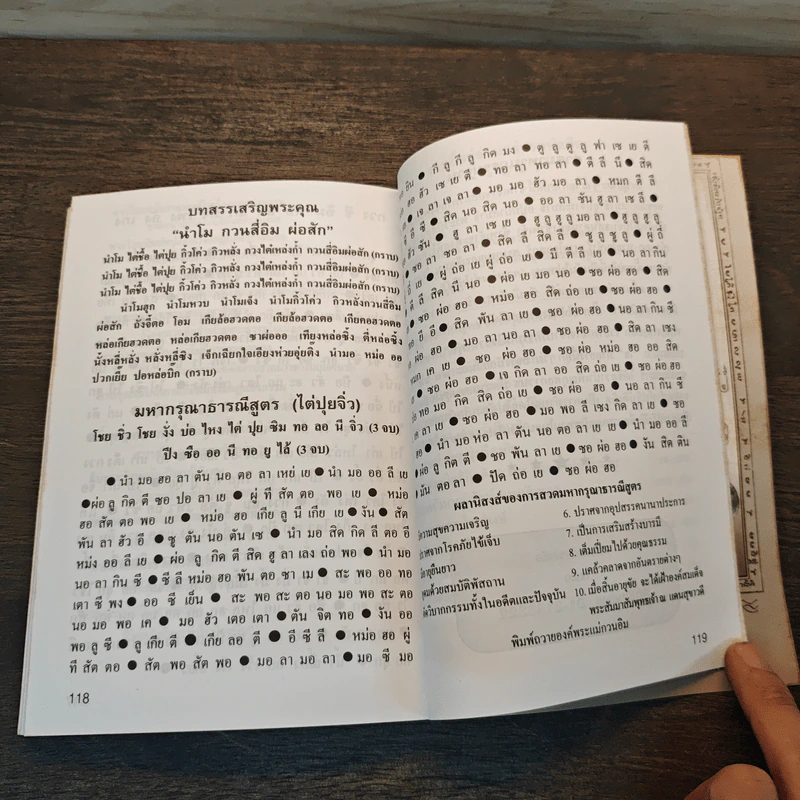 บทสรรเสริญพระคุณ
“นำโม กวนสี่อิม ผ่อสัก”
นำโม ไต่ชื้อ ไต่ปุย กิ้วโค่ว กิวหลั่ง กวงไต๋เหล่งก้ำ กวนสี่อิมผ่อสัก (กราบ)
นำโม ไต่ชื้อ ไต่ปุย กิ้วโค่ว กิวหลั่ง กวงไต๋เหล่งก้ำ กวนสี่อิมผ่อสัก (กราบ)
นำโม ไต่ชื้อ ไต่ปุย กิ้วโค่ว กิวหลั่ง กวงไต๋เหล่งก้ำ กวนสี่อิมผ่อสัก (กราบ)
นำโมฮุก นำโมหวบ นำโมเจ็ง นำโมกิ้วโค่ว กิวหลั่งกวนสี่อิม
ผ่อสัก ถั่งจี้ตอ โอม เกียล้อฮวดตอ เกียล้อฮวดตอ เกียคอฮวดตอ
หล่อเกียฮวดตอ หล่อเกียฮวดตอ ซาผ่อออ เทียงหล่อซิ้ง ตี่หล่อซิ้ง
นั้งหลี่หลั่ง หลังหลี่ซิง เจ็กเฉียกใจเอียงห่วยอู่ยติ๋ง นำมอ หม่อ ออ
ปวกเยี้ย ปอหล่อบิ๊ก (กราบ)
มหากรุณาธารณีสูตร (ไต่ปุยจิ่ว)
โชย ชิ่ว โชย งั่ง บ่อ ไหง ไต่ ปุย ซิม ทอ ลอ นี จิ่ว (3 จบ)
ปึง ซือ ออ นี ทอ ยู ไล้ (3 จบ)
●นำ มอ ฮอ ลา ตัน นอ ตอ ลา เหย่ เย ● นำ มอ ออ ลี เย
●ผ่อ ลู กิต ตี ซอ ปอ ลา เย ● ผู่ ที สัต ตอ พอ เย ● หม่อ
ฮอ สัต ตอ พอ เย ● หม่อ ฮอ เกีย ลู นี เกีย เย ● งัน ● สัต
พัน ลา ฮัว อี ● ซู ตัน นอ ตัน เซ ● นำ มอ สิด กิด ลี ตอ อี
หม่ง ออ ลี เย ● ผ่อ ลู กิต ตี สิด ฮู ลา เลง ถ่อ พอ ● นำ มอ
นอ ลา กิน ซี ● ซี ลี หม่อ ฮอ พัน ตอ ซา เม ● สะ พอ ออ ทอ
เตา ซี พง ● ออ ซี เย็น ● สะ พอ สะ ตอ นอ มอ พอ สะ ตอ
นอ มอ พอ เค ● มอ ฮัว เตอ เตา ● ตัน จิต ทอ ● งัน ออ
พอ ลู ซี ● ลู เกีย ตี ● เกีย ลอ ตี ● อี ซี ลี ● หม่อ ฮอ ผู่
ที สัต ตอ ● สัต พอ สัต พอ ● มอ ลา มอ ลา ● มอ ซี มอ
118
กิน ● กี ลู กี ลู กิด มง ● ตู ลู ตู ลู ฟา เซ เย ตี
ฮอ ฮัว เซ เย ตี ● ทอ ลา ทอ ลา ● ตี ลี นี ● สิด
● เจ ลา เจ ลา ● มอ มอ ฮัว มอ ลา ● หมก ตี ลี
อี ซี ● สิด นอ สิด นอ ● ออ ลา ซัน ฮู ลา เซ ลี
ฮัว ซัน ● ฮู ลา เซ เย ● ฮู ลู ฮู ลู มอ ลา ● ฮู ลู ฮู ลู
● ซอ ลา ซอ ลา ● สิด ลี สิด ลี ● ซู ลู ซู ลู ● ผู่ ถี่
● ผู่ ถ่อ เย ผู่ ถ่อ เย ● มี ตี ลี เย ● นอ ลา กิน
ตี ลี สิด นี นอ ● ผ่อ เย มอ นอ ● ซอ ผ่อ ฮอ ● สิด
● ซอ ผ่อ ฮอ ● หม่อ ฮอ สิด ถ่อ เย ● ซอ ผ่อ ฮอ
อี อี ● สิด พัน ลา เย ● ซอ ผ่อ ฮอ ● นอ ลา กิน ซี
ผ่อ ฮอ ● มอ ลา นอ ลา ● ซอ ผ่อ ฮอ ● สิด ลา เซง
หมก เค เย ● ซอ ผ่อ ฮอ ● ซอ ผ่อ หม่อ ฮอ ออ สิด
● ซอ ผ่อ ฮอ ● เจ กิด ลา ออ สิด ถ่อ เย ● ซอ ผ่อ ฮอ
ทอ มอ กิด สิด ถ่อ เย ● ซอ ผ่อ ฮอ ● นอ ลา กิน ซี
เย ● ซอ ผ่อ ฮอ ● มอ พอ ลี เซง กิด ลา เย ● ซอ
ฮอ ● นำ มอ ห่อ ลา ตัน นอ ตอ ลา เย เย ● นำ มอ ออ
●ผ่อ ลู กิต ตี ● ซอ พัน ลา เย ● ซอ ผ่อ ฮอ ● งัน สิด ติน
มัน ตอ ลา ● ปัด ถ่อ เย ● ซอ ผ่อ ฮอ
ผลานิสงส์ของการสวดมหากรุณาธารณีสูตร
ความสุขความเจริญ
ปราศจากโรคภัยไข้เจ็บ
อายุยืนยาว
ด้วยสมบัติพัสถาน
วิบากกรรมทั้งในอดีตและปัจจุบัน
6. ปราศจากอุปสรรคนานาประการ
7. เป็นการเสริมสร้างบารมี
8. เต็มเปี่ยมไปด้วยคุณธรรม
9. แคล้วคลาดจากอันตรายต่างๆ
10. เมื่อสิ้นอายุขัย จะได้เฝ้าองค์สมเด็จ
พระสัมมาสัมพุทธเจ้า ณ แดนสุขาวดี
พิมพ์ถวายองค์พระแม่กวนอิม
119